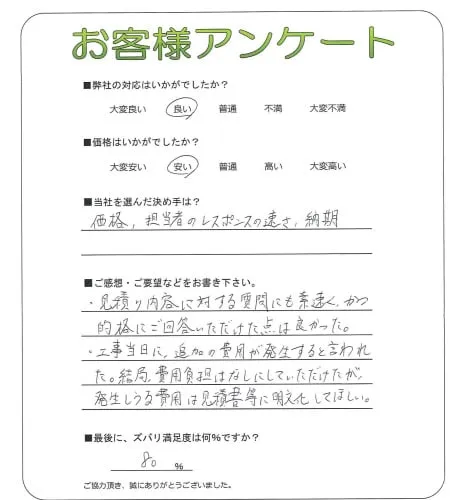 お客様アンケート
■弊社の対応はいかがでしたか？
大変良い 良い 普通 不満 大変不満
■価格はいかがでしたか？
大変安い 安い 普通 高い 大変高い
■当社を選んだ決め手は？
価格，担当者のレスポンスの速さ，納期
■ご感想・ご要望などをお書き下さい。
・見積り内容に対する質問にも素速く，かつ
的格にご回答いただけた点は良かった。
・工事当日に，追加の費用が発生すると言われ
た。結局，費用負担はなしにしていただけたが，
発生しうる費用は見積書等に明文化してほしい。
■最後に、ズバリ満足度は何%ですか？
80 %
ご協力頂き、誠にありがとうございました。